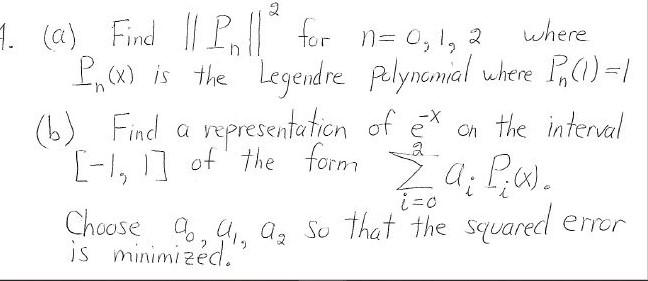 1. (a) Find || P_n ||^2 for n = 0, 1, 2 where
P_n(x) is the Legendre Polynomial where P_n(1) = 1
(b) Find a representation of e^-x on the interval
[-1, 1] of the form ∑_{i=0}^{2} a_i P_i(x).
Choose a_0, a_1, a_2 so that the squared error
is minimized.